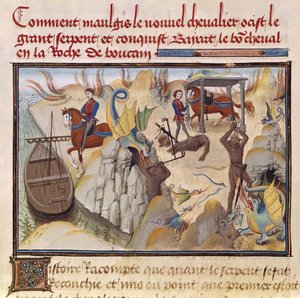 Comment maulgis le nouuel cheualier occist le
grant serpent et conquist Baiart le bō cheual
en la Roche de boucam
Istoire racompte que quant le serpent se fut
recouchie et mis ou point que premier estoit